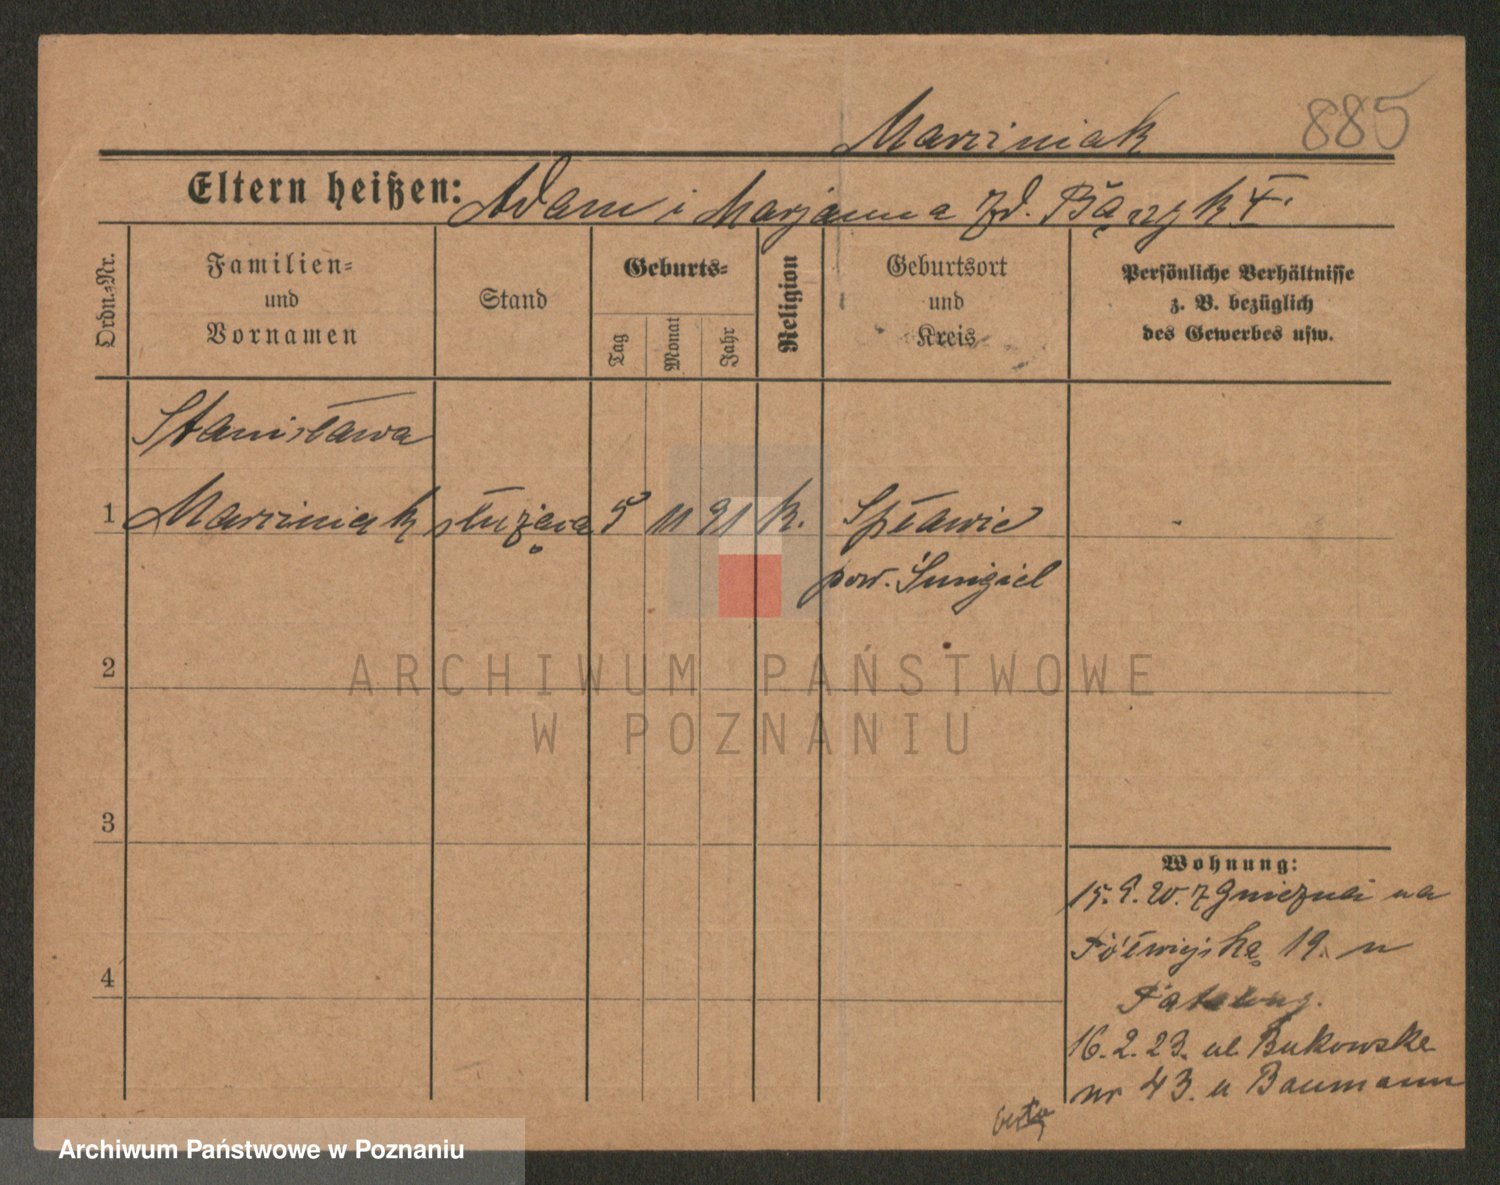 Marciniak 885
Eltern heißen: Adam i Marjanna zd. Bączyk †
Ordn.-Nr.
Familien-
und
Vornamen
Stand
Geburts-
Tag
Monat
Jahr
Religion
Geburtsort
und
Kreis
Persönliche Verhältnisse
z. B. bezüglich
des Gewerbes usw.
Stanisława
1 Marciniak służąca 5 11 91 k. Spławie
pow. Śmigiel
2
3
4
Wohnung:
15. 9. 20. z Gniezna na
Półwiejską 19. u
16. 2. 23. ul. Bukowska
nr 43. u Baumann
ARCHIWUM PAŃSTWOWE
W POZNANIU
Archiwum Państwowe w Poznaniu